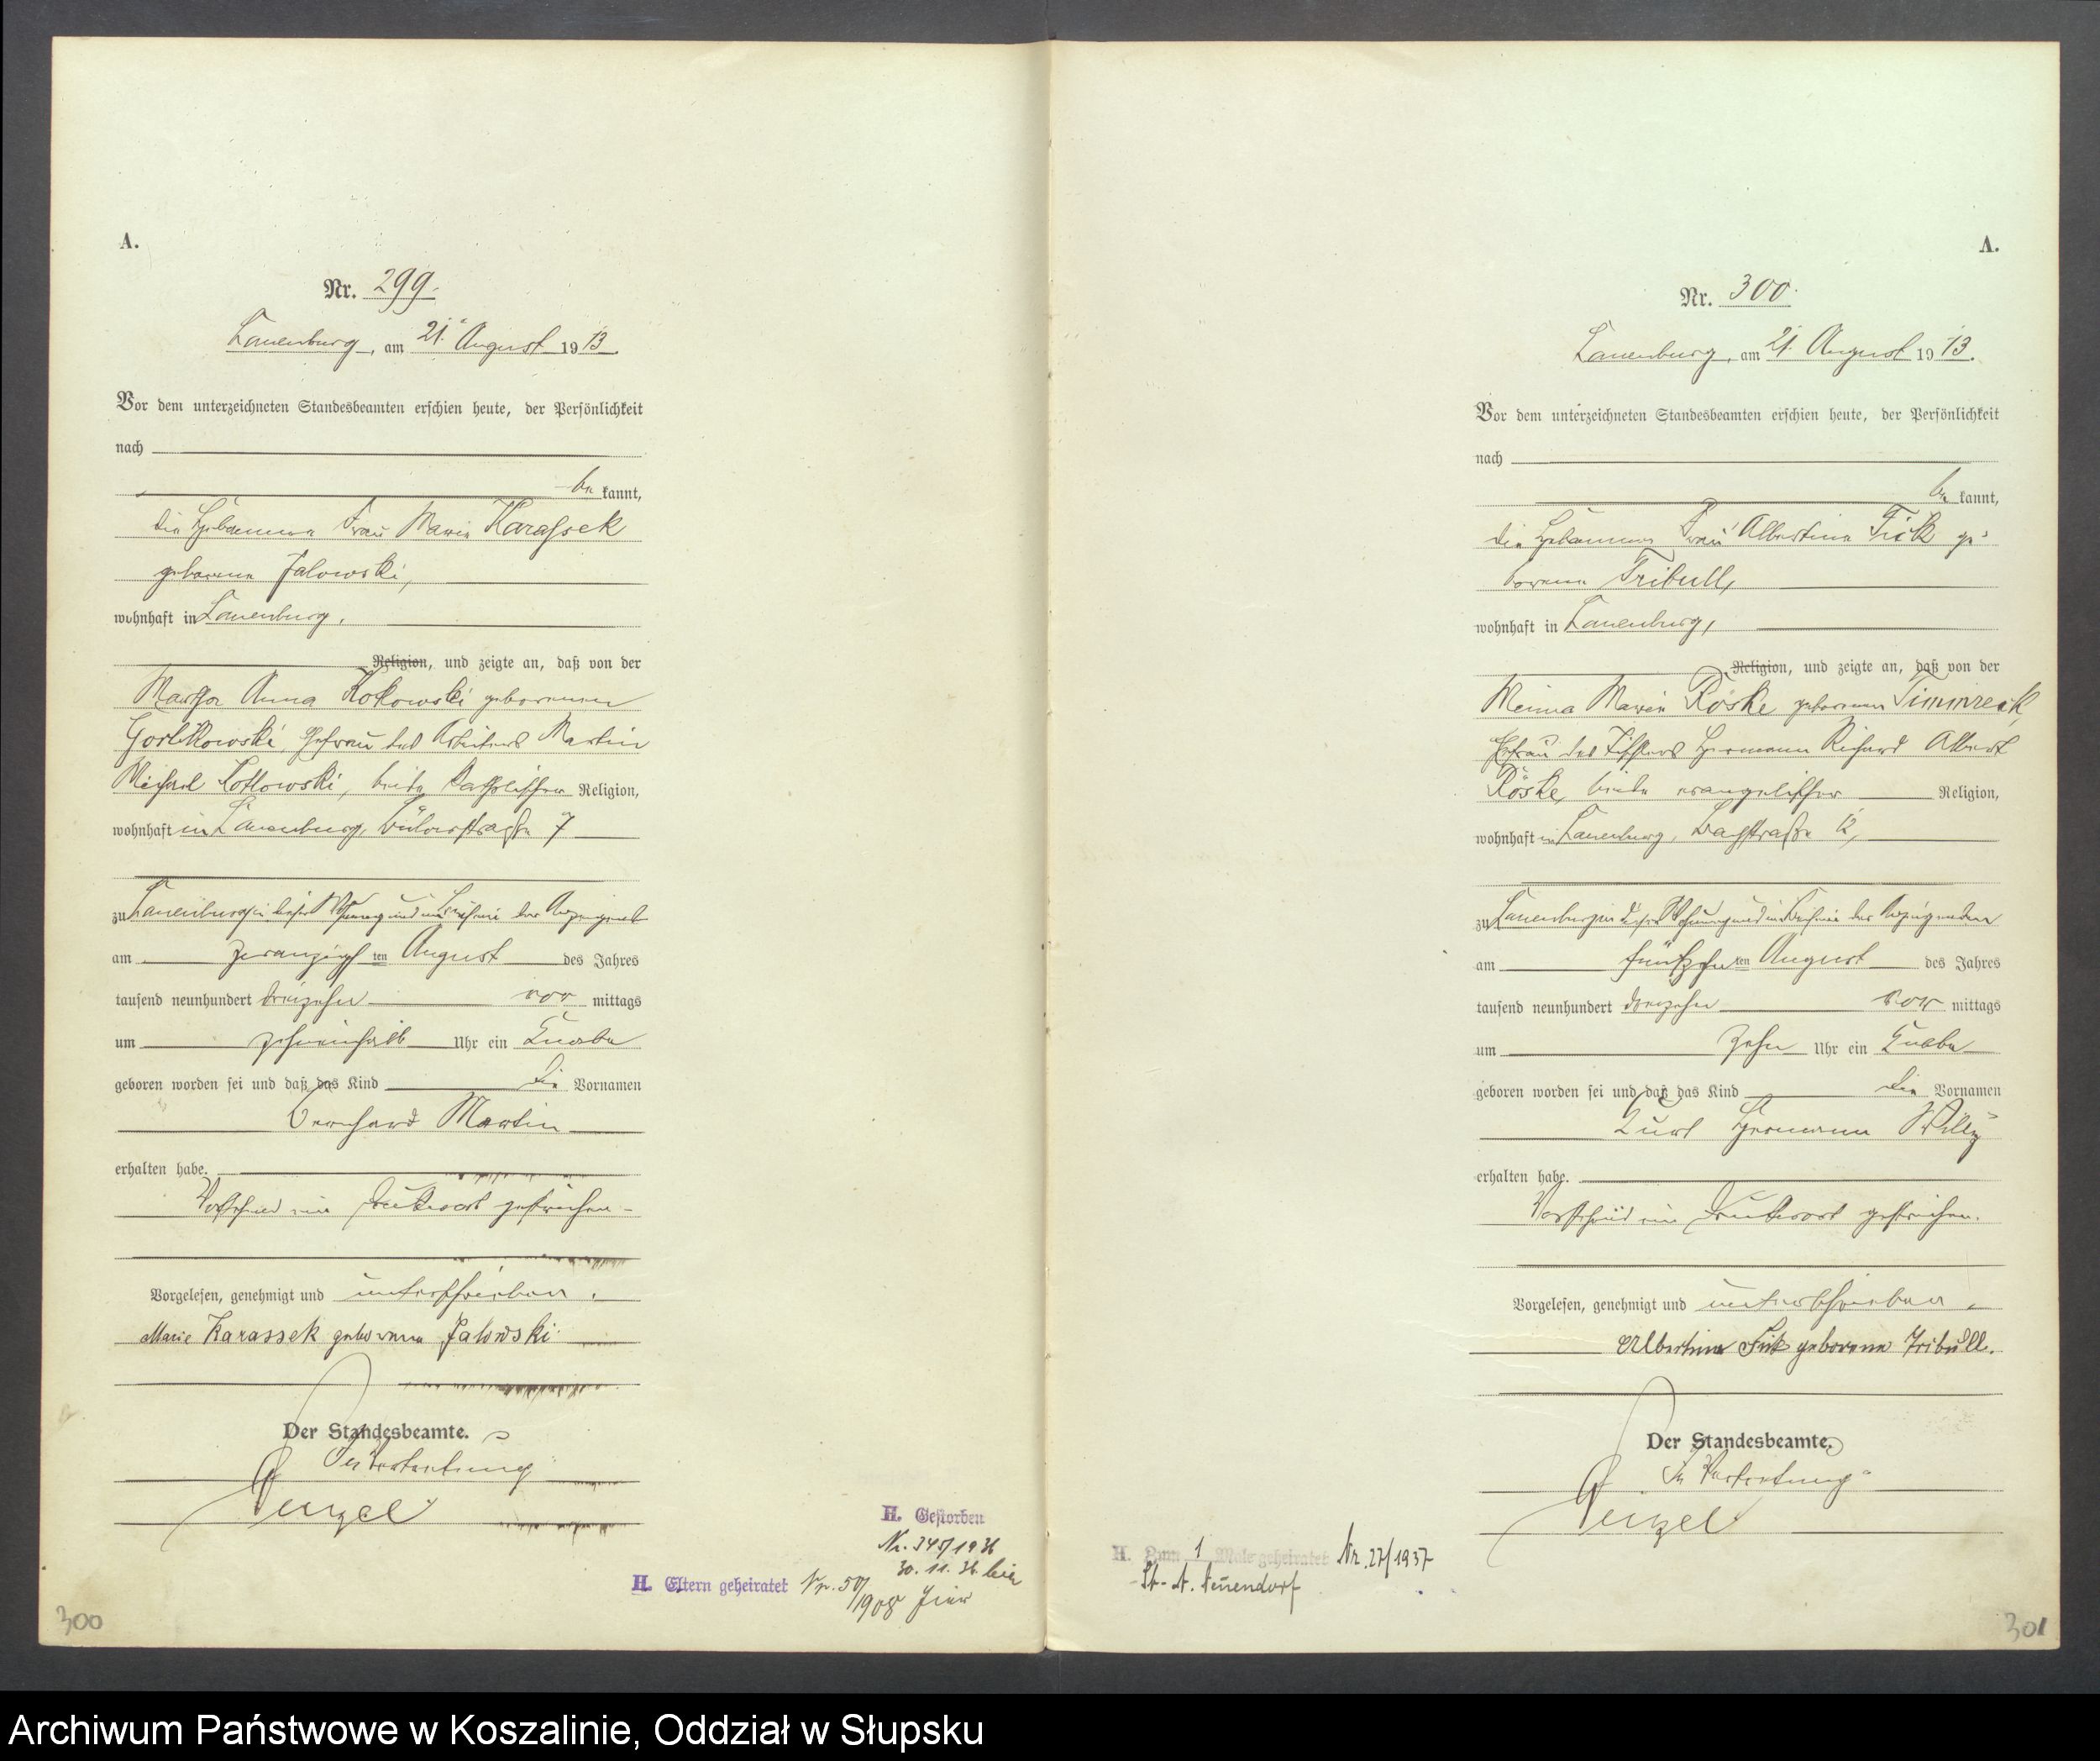 A.
Nr. 299.
Lauenburg, am 21. August 1913.
Vor dem unterzeichneten Standesbeamten erschien heute, der Persönlichkeit
nach
be kannt,
die Hebamme Frau Marie Karassek
geborene Jalowski,
wohnhaft in Lauenburg,
Religion, und zeigte an, daß von der
Martha Anna Kotlowski geborenen
Gorlikowski, Ehefrau des Arbeiters Martin
Michael Kotlowski, beide katholischer Religion,
wohnhaft in Lauenburg, Bülowstraße 7
zu Lauenburg in dieser Wohnung und im Beisein der Anzeigenden
am zwanzigsten August des Jahres
tausend neunhundert dreizehn vor mittags
um zehneinhalb Uhr ein Knabe
geboren worden sei und daß das Kind die Vornamen
Bernhard Martin
erhalten habe.
Vorstehend ein Druckwort gestrichen
Vorgelesen, genehmigt und unterschrieben.
Marie Karassek geborene Jalowski
Der Standesbeamte.
In Vertretung
H. Gestorben
Nr. 345/1936
30.11.36
H. Eltern geheiratet Nr. 50/
1908
300
A.
Nr. 300.
Lauenburg, am 21. August 1913.
Vor dem unterzeichneten Standesbeamten erschien heute, der Persönlichkeit
nach
be kannt,
die Hebamme Frau Albertine Fick ge-
borene Tribull,
wohnhaft in Lauenburg,
Religion, und zeigte an, daß von der
Meima Marie Röske geborenen Timmreck,
Ehefrau des Tischlers Hermann Richard Albert
Röske, beide evangelischer Religion,
wohnhaft in Lauenburg, Bachstraße 12,
zu Lauenburg in dieser Wohnung und im Beisein der Anzeigenden
am fünfzehnten August des Jahres
tausend neunhundert dreizehn vor mittags
um zehn Uhr ein Knabe
geboren worden sei und daß das Kind die Vornamen
Kurt Hermann Willy
erhalten habe.
Vorstehend ein Druckwort gestrichen.
Vorgelesen, genehmigt und unterschrieben
Albertine Fick geborene Tribull.
Der Standesbeamte.
In Vertretung
H. Zum 1 Male geheiratet Nr. 27/1937
St. A. Neuendorf
301
Archiwum Państwowe w Koszalinie, Oddział w Słupsku